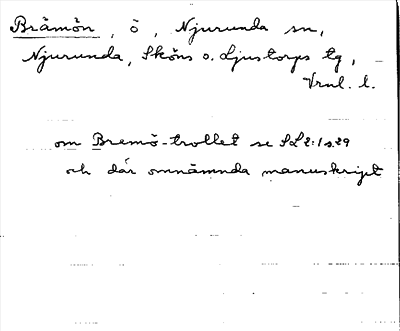 Brämön, ö, Njurunda sn,
Njurunda, Sköns o. Ljustorps tg,
Vrnl. l.
om Bremö-trollet se SL 2:1 s. 29
och där omnämnda manuskript